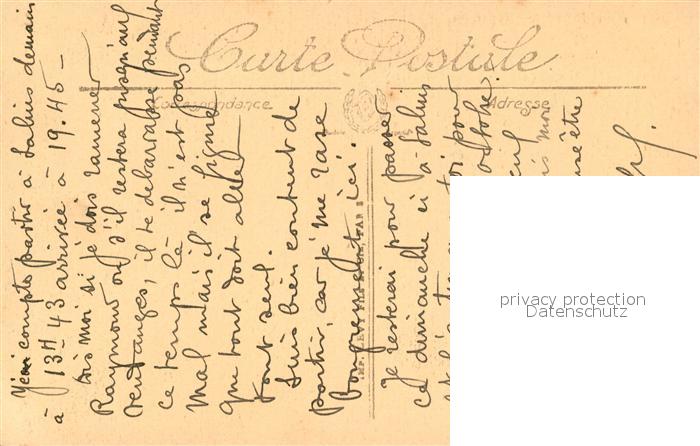 Carte Postale
Correspondance
Adresse
Yeni compte partir à Salins demain
à 13H 43 arrivée à 19.45 -
Dis moi si je dois ramener
Raymond ou s'il restera jusqu'aux
vendanges, il te débarrasse pendant
ce temps là il n'est pas
mal mais il se figure
que tout doit aller
tout seul.
Suis bien content de
partir, car je me rase
bougrement ici.
Je resterai pour passer
ce dimanche ci à Salins
toi pour
être
privacy protection
Datenschutz